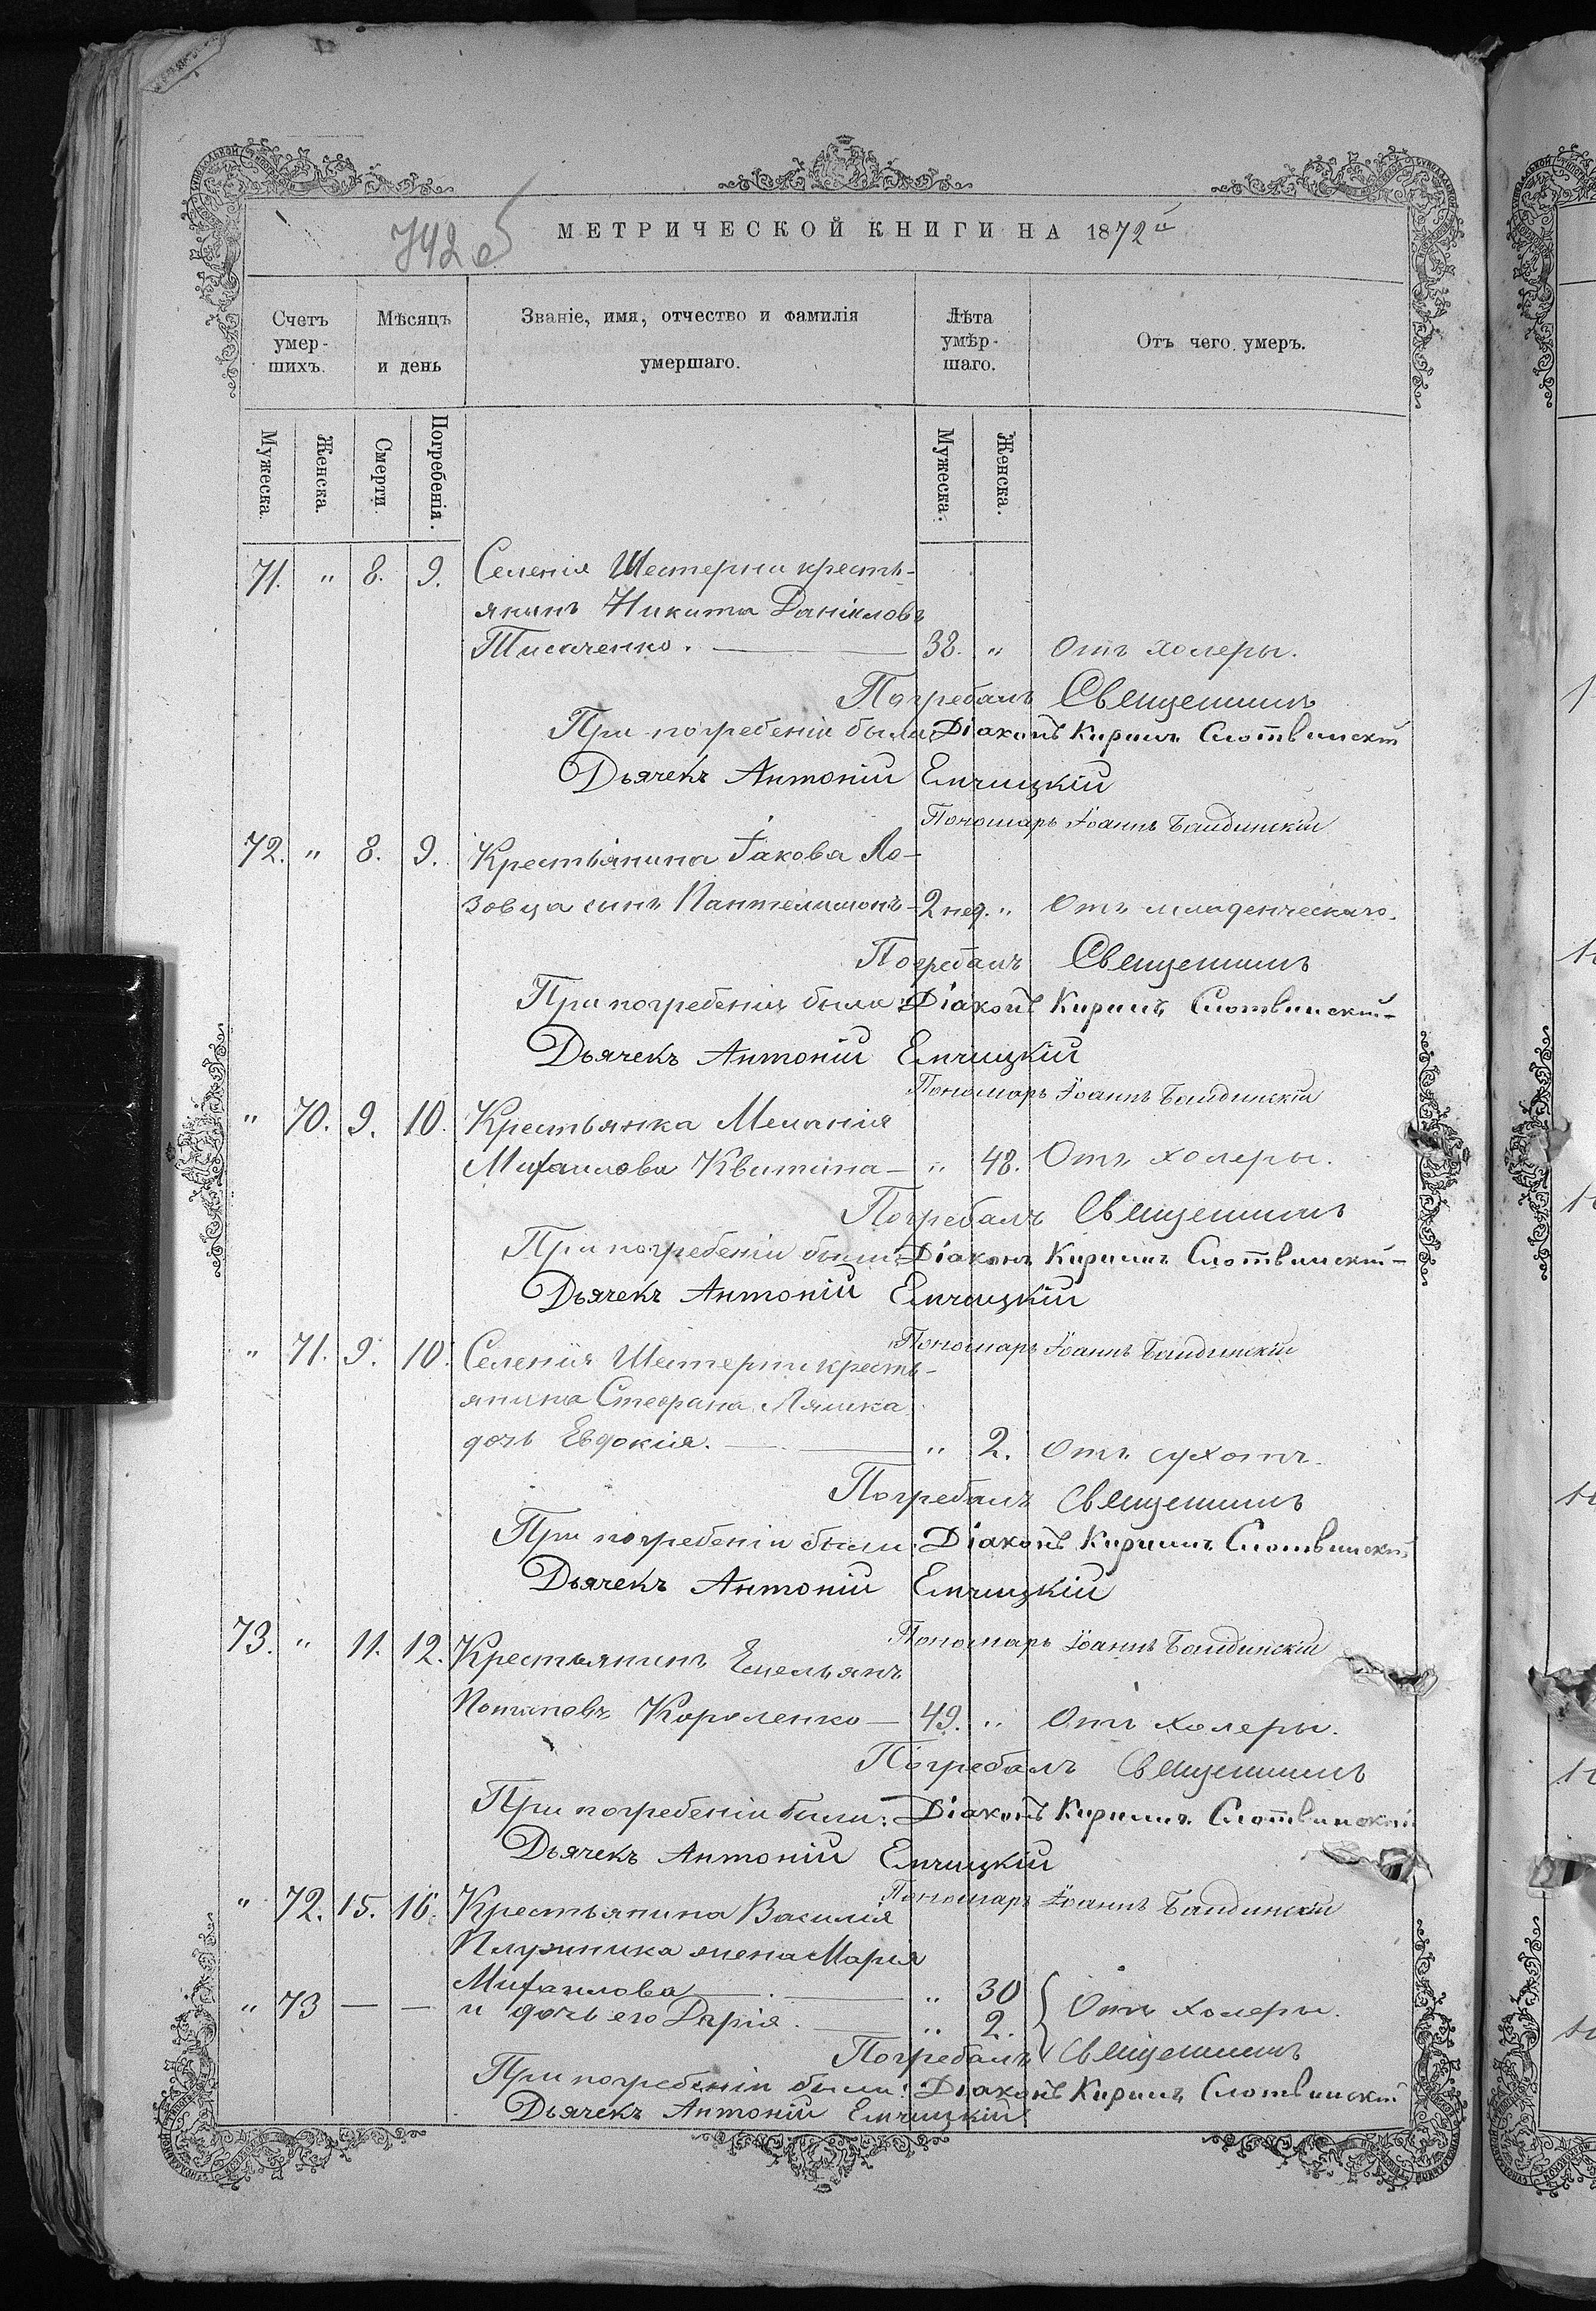 742 об
МЕТРИЧЕСКОЙ КНИГИ НА 1872й
Счетъ умер-шихъ.
Мѣсяцъ и день
Званіе, имя, отчество и фамилія умершаго.
Лѣта умѣр-шаго.
Отъ чего умеръ.
Мужеска. Женска. Смерти. Погребенія. Мужеска. Женска.
71. " 8. 9. Селенія Шестерни кресть-
янинъ Никита Даніиловъ
Писаченко. — 38. " Отъ холеры.
Погребалъ Священникъ
При погребеніи были: Діаконъ Кириллъ
Дьячекъ Антоній Емчицкій
Пономарь Іоаннъ
72. " 8. 9. Крестьянина Іакова Ло-
зовца сынъ Пантелимонъ - 2 нед. " Отъ младенческаго.
Погребалъ Священникъ
При погребеніи были: Діаконъ Кириллъ
Дьячекъ Антоній Емчицкій
Пономарь Іоаннъ
" 70. 9. 10. Крестьянка Меланія
Михаилова Квитина — " 48. Отъ холеры.
Погребалъ Священникъ
При погребеніи были: Діаконъ Кириллъ
Дьячекъ Антоній Емчицкій
Пономарь Іоаннъ
" 71. 9. 10. Селенія Шестерни кресть-
янина Стефана Ляшка
дочь Евдокія. — " 2. Отъ сухотъ.
Погребалъ Священникъ
При погребеніи были: Діаконъ Кириллъ
Дьячекъ Антоній Емчицкій
Пономарь Іоаннъ
73. " 11. 12. Крестьянинъ Емельянъ
Потаповъ Короленко — 49. " Отъ холеры.
Погребалъ Священникъ
При погребеніи были: Діаконъ Кириллъ
Дьячекъ Антоній Емчицкій
Пономарь Іоаннъ
" 72. 15. 16. Крестьянина Василія
Плужника жена Марія
Михаилова — " 30
" 73 — — и дочь его Дарія. " 2. Отъ холеры.
Погребалъ Священникъ
При погребеніи были: Діаконъ Кириллъ
Дьячекъ Антоній Емчицкій